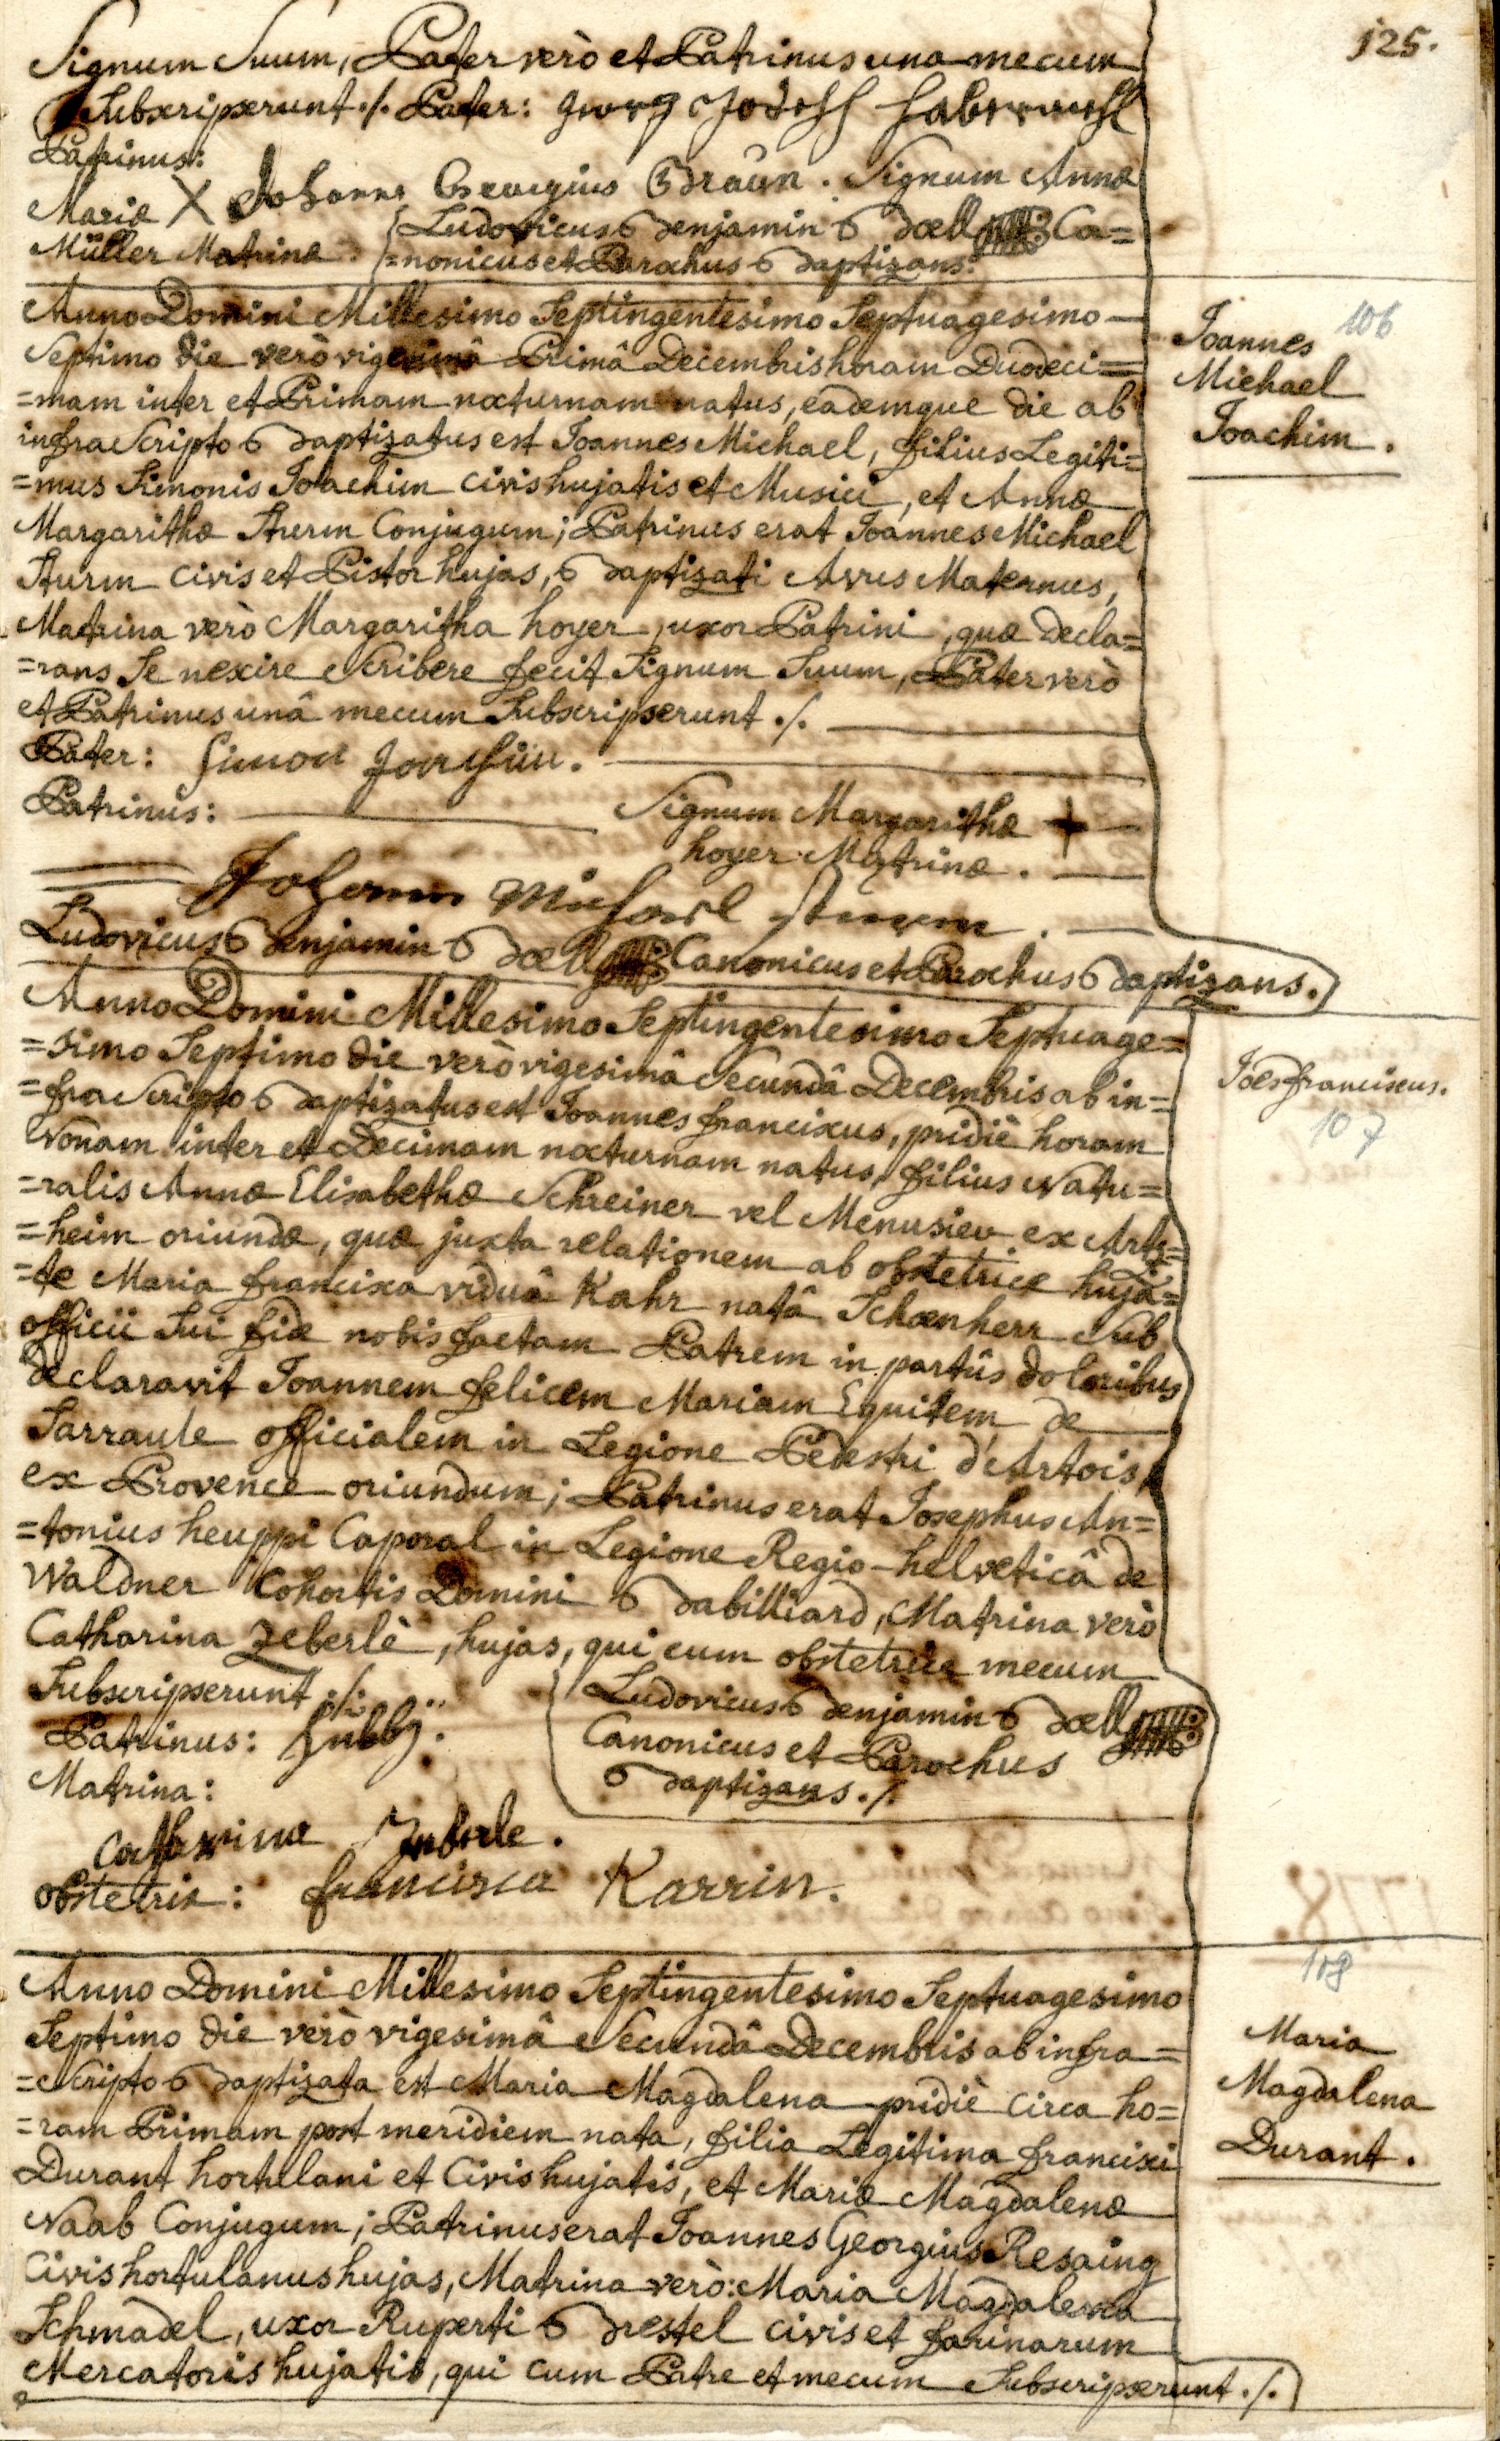 125.
Signum Suum, Pater verò et Patrinus una mecum
Subscripserunt ./. Pater: Georg
Patrinus:
Johannes Georgius Braun. Signum Annæ
Mariæ X
Müller Matrinæ. Ludovicus Benjamin Bœll Ca=
=nonicus et Parochus Baptizans.
Anno Domini Millesimo Septingentesimo Septuagesimo
Septimo die verò vigesimâ Primâ Decembris horam Duodeci=
=mam inter et Primam nocturnam natus, eademque die ab
infra Scripto Baptizatus est Joannes Michael, filius Legiti=
=mus Simonis Joachim civis hujatis et Musici, et Annæ
Margarithæ Sturm Conjugum; Patrinus erat Joannes Michael
Sturm civis et Pistor hujas, Baptizati Avus Maternus,
Matrina verò Margaritha hoyer, uxor Patrini, quæ decla=
=rans Se nescire Scribere fecit Signum Suum, Pater verò
et Patrinus unâ mecum Subscripserunt ./.
Pater: Simon Joachim.
Patrinus: Signum Margarithæ +
hoyer Matrinæ.
Johannes Michael Sturm.
Ludovicus Benjamin Bœll Canonicus et Parochus Baptizans.
106
Joannes
Michael
Joachim.
Anno Domini Millesimo Septingentesimo Septuage=
=simo Septimo die verò vigesimâ Secundâ Decembris ab in=
=fra Scripto Baptizatus est Joannes franciscus, pridiè horam
Nonam inter et Decimam nocturnam natus, filius Natu=
=ralis Annæ Elisabethæ Schreiner vel Menusier ex Artz=
=heim oriundæ, quæ juxta relationem ab obstetrice huja=
=te Maria francisca viduâ Kahr natâ Schœnherr Sub
officii Sui fide nobis factam Patrem in partûs doloribus
declaravit Joannem felicem Mariam Equitem de
Sarraute officialem in Legione Pedestri d'Artois,
ex Provence oriundum; Patrinus erat Josephus An=
=tonius heuppi Caporal in Legione Regio-helveticâ de
Waldner Cohortis Domini Babilliard, Matrina verò
Catharina Zeberlè, hujas, qui cum obstetrice mecum
Subscripserunt ./.
Patrinus:
Matrina:
Catherina
obstetrix: francisca Karrin.
Ludovicus Benjamin Bœll
Canonicus et Parochus
Baptizans ./.
Joes franciscus.
107
Anno Domini Millesimo Septingentesimo Septuagesimo
Septimo die verò vigesimâ Secundâ Decembris ab infra=
=Scripto Baptizata est Maria Magdalena pridiè circa ho=
=ram Primam post meridiem nata, filia Legitima francisci
Durant hortulani et Civis hujatis, et Mariæ Magdalenæ
Naab Conjugum; Patrinus erat Joannes Georgius Resaing
Civis hortulanus hujas, Matrina verò: Maria Magdalena
Schmadel, uxor Ruperti Brestel civis et farinarum
Mercatoris hujatis, qui cum Patre et mecum Subscripserunt ./.
108
Maria
Magdalena
Durant.